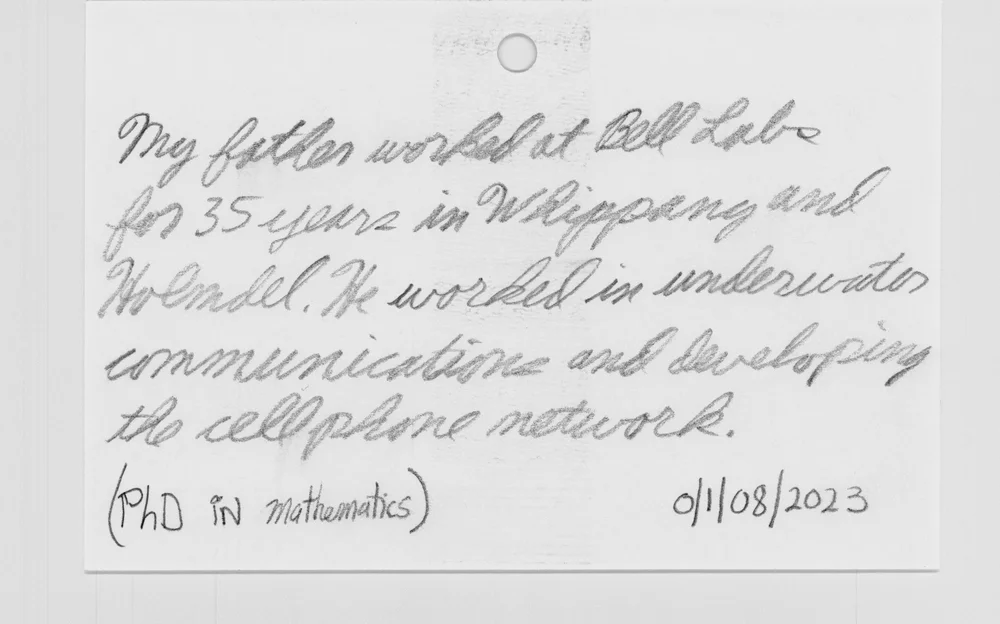 My father worked at Bell Labs
for 35 years in Whippany and
Holmdel. He worked in underwater
communications and developing
the cellphone network.
(PhD in mathematics) 0/1/08/2023